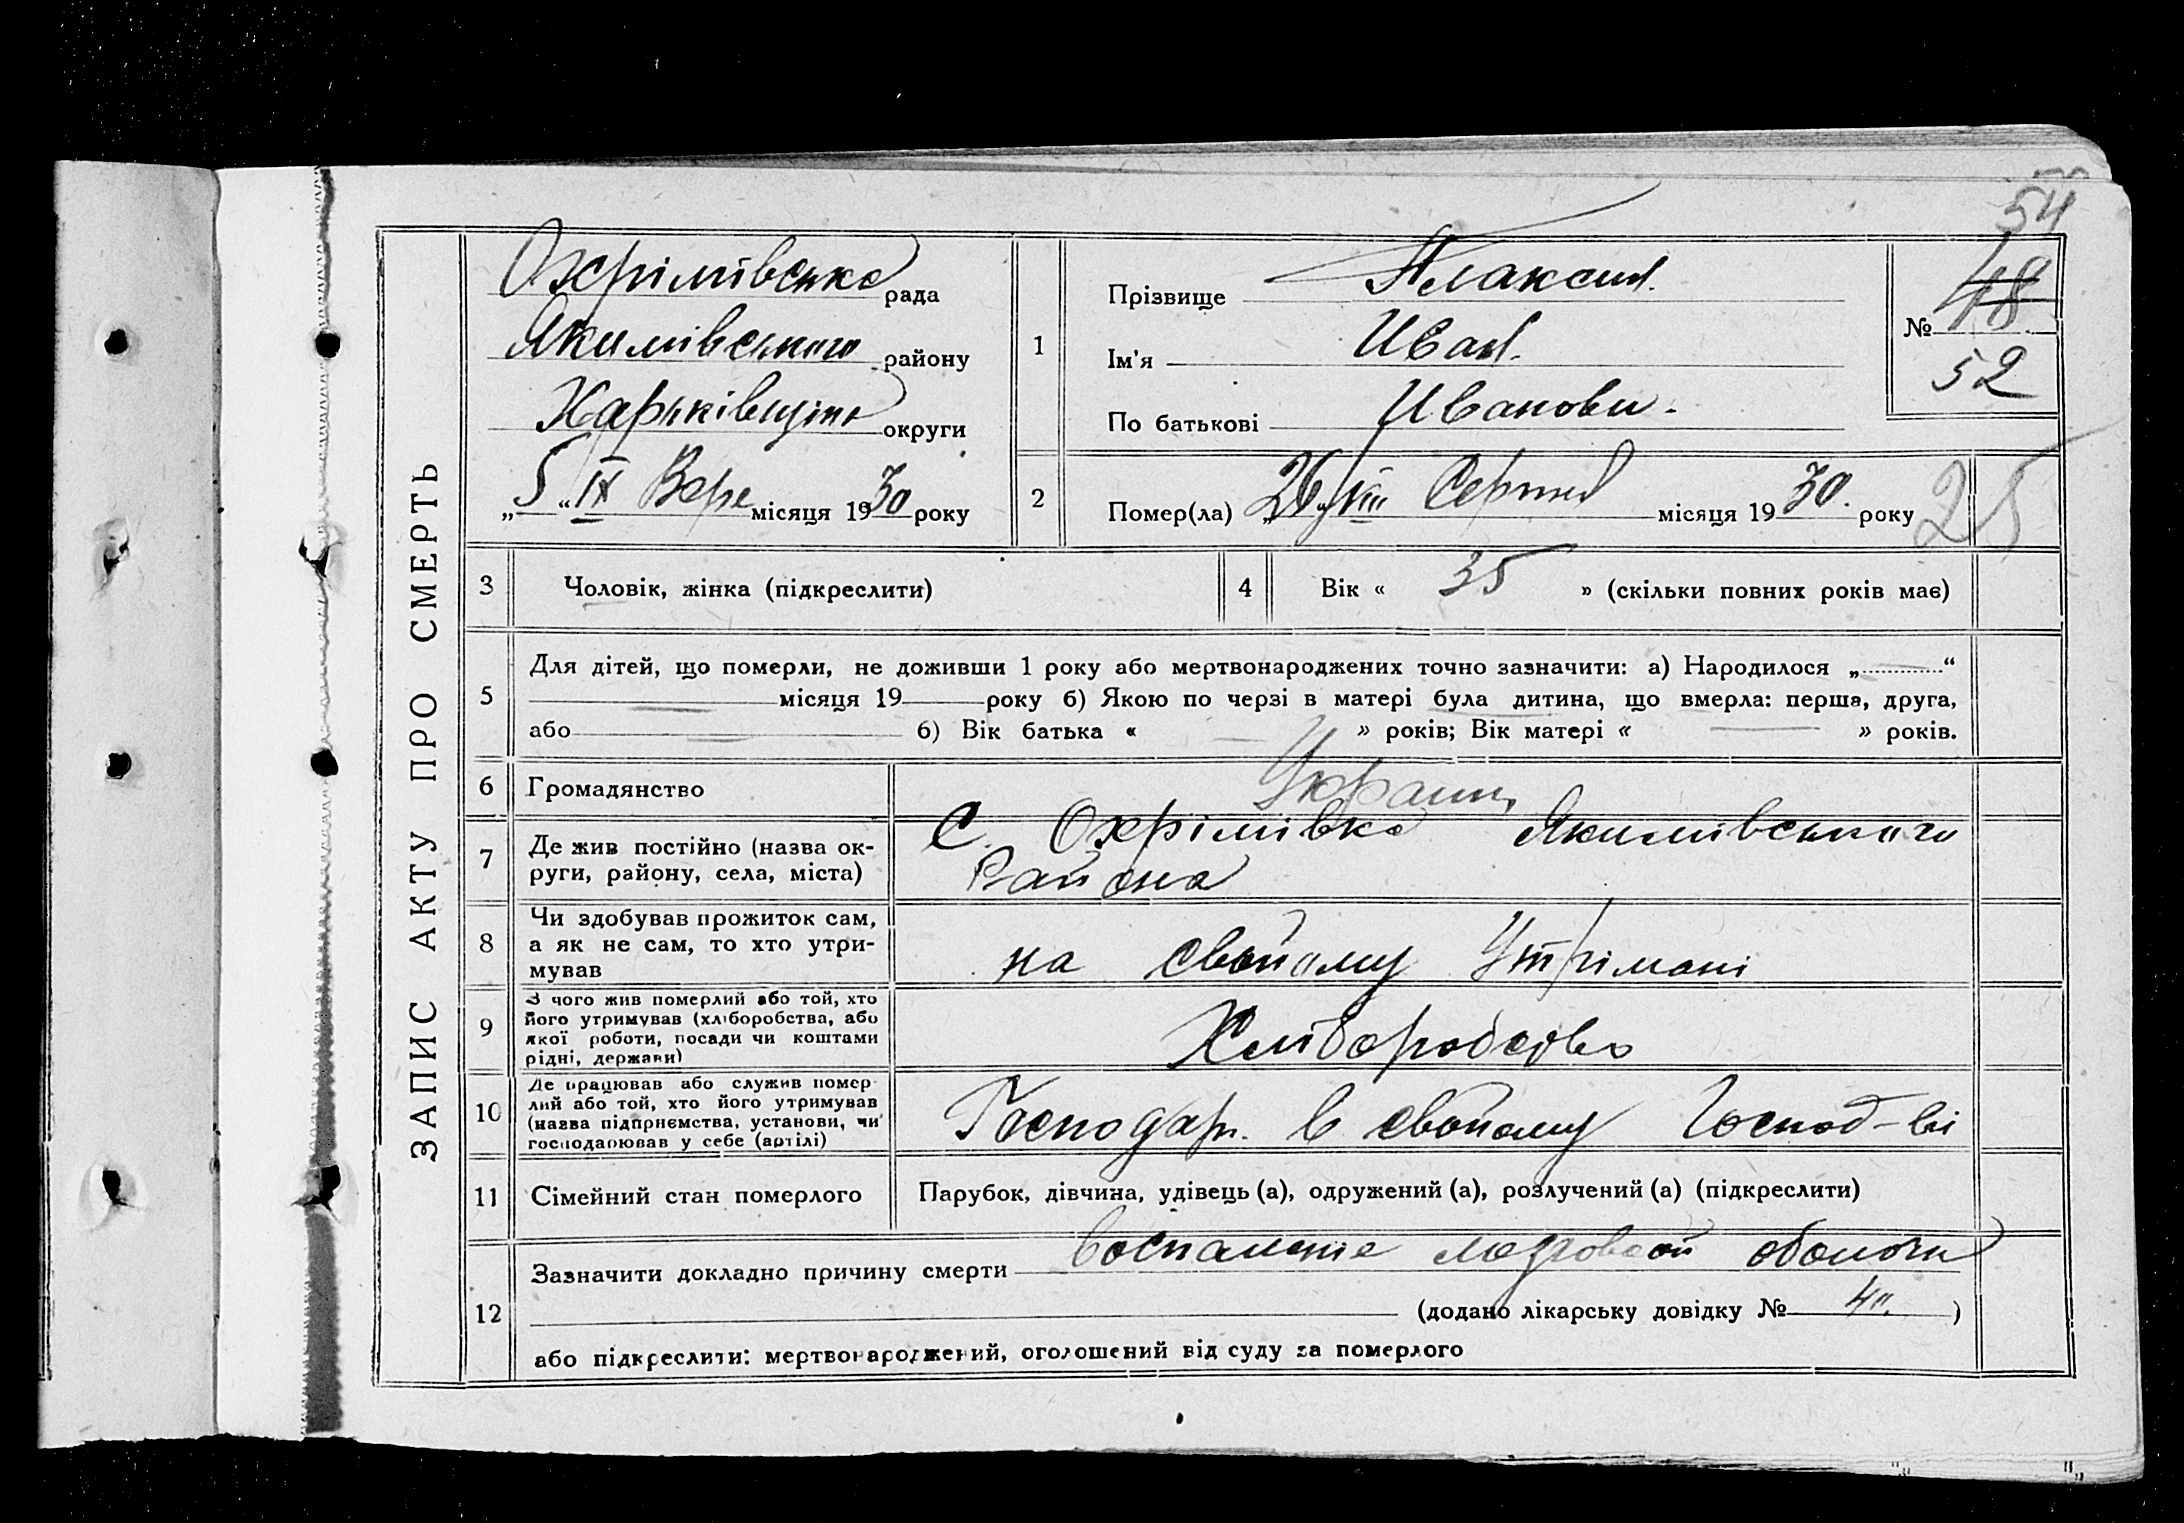 54
ЗАПИС АКТУ ПРО СМЕРТЬ
Охрімівська рада
Якимівського району
округи
„5“ IX Вере місяця 1930 року
1
Прізвище Плаксин.
Ім'я Иван.
По батькові Иванови.
№ 48
52
2
Помер(ла) „26„ VIII Серпня місяця 1930. року
25
3 Чоловік, жінка (підкреслити)
4 Вік « 35 » (скільки повних років має)
5
Для дітей, що померли, не доживши 1 року або мертвонароджених точно зазначити: а) Народилося „ “
місяця 19 року б) Якою по черзі в матері була дитина, що вмерла: перша, друга,
або б) Вік батька « » років; Вік матері « » років.
6 Громадянство Украин,
7
Де жив постійно (назва ок-
руги, району, села, міста)
С. Охрімівка Якимівського
Района
8
Чи здобував прожиток сам,
а як не сам, то хто утри-
мував
на свойому Утрімані
9
З чого жив померлий або той, хто
його утримував (хліборобства, або
якої роботи, посади чи коштами
рідні, держави)
Хліборобство
10
Де працював або служив помер-
лий або той, хто його утримував
(назва підприємства, установи, чи
господарював у себе (артілі)
Господар. в свойому Господ-ві
11 Сімейний стан померлого
Парубок, дівчина, удівець (а), одружений (а), розлучений (а) (підкреслити)
12
Зазначити докладно причину смерти воспаление мозговой оболочки
(додано лікарську довідку № )
або підкреслити: мертвонароджений, оголошений від суду за померлого